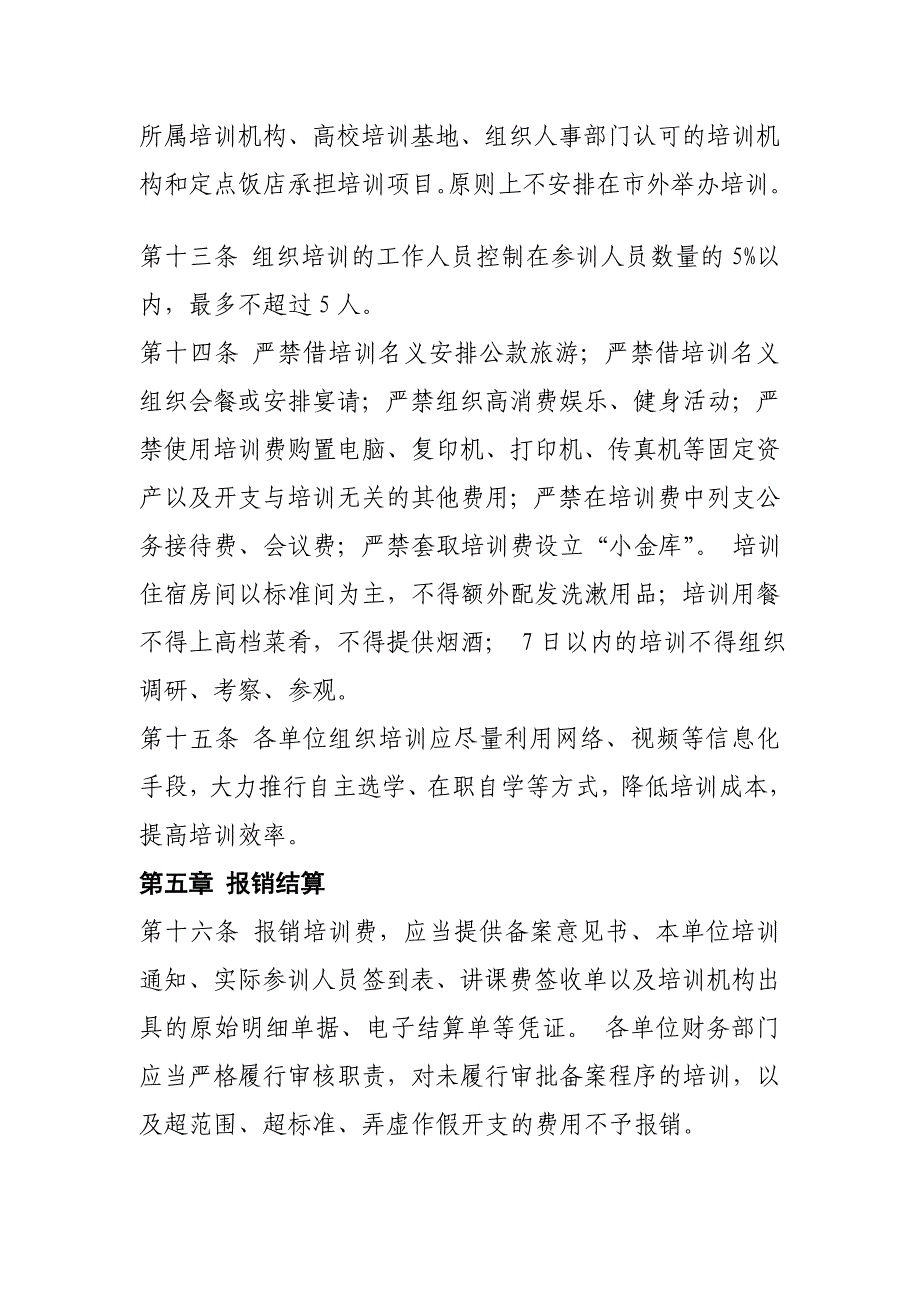 所属培训机构、高校培训基地、组织人事部门认可的培训机
构和定点饭店承担培训项目。原则上不安排在市外举办培训。
第十三条 组织培训的工作人员控制在参训人员数量的 5%以
内，最多不超过 5 人。
第十四条 严禁借培训名义安排公款旅游；严禁借培训名义
组织会餐或安排宴请；严禁组织高消费娱乐、健身活动；严
禁使用培训费购置电脑、复印机、打印机、传真机等固定资
产以及开支与培训无关的其他费用；严禁在培训费中列支公
务接待费、会议费；严禁套取培训费设立“小金库”。 培训
住宿房间以标准间为主，不得额外配发洗漱用品；培训用餐
不得上高档菜肴，不得提供烟酒； 7 日以内的培训不得组织
调研、考察、参观。
第十五条 各单位组织培训应尽量利用网络、视频等信息化
手段，大力推行自主选学、在职自学等方式，降低培训成本，
提高培训效率。
第五章 报销结算
第十六条 报销培训费，应当提供备案意见书、本单位培训
通知、实际参训人员签到表、讲课费签收单以及培训机构出
具的原始明细单据、电子结算单等凭证。 各单位财务部门
应当严格履行审核职责，对未履行审批备案程序的培训，以
及超范围、超标准、弄虚作假开支的费用不予报销。